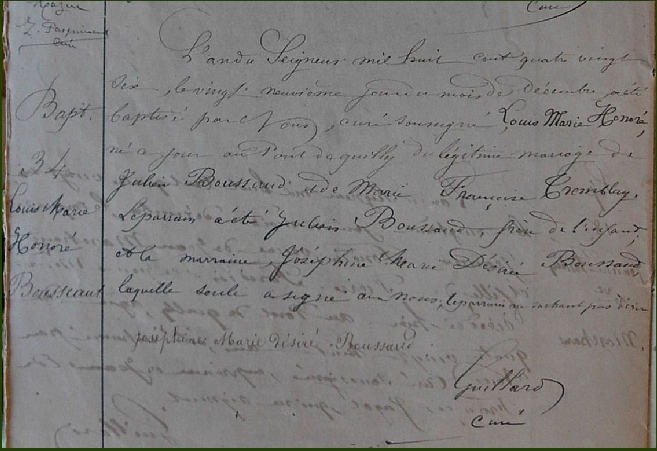 Curé
L'an du Seigneur mil huit cent quatre vingt
Bapt.
dix, le vingt neuvième jour du mois de décembre, a été
baptisé par Nous, curé soussigné, Louis Marie Honoré,
34
né ce jour au Pont de quilly du légitime mariage de
Julien Boussaud et de Marie Françoise Tremblay.
Louis Marie
Honoré
Bousseaut
Le parrain a été Julien Boussaud, frère de l'enfant,
et la marraine, Joséphine Marie Désirée Boussaud
laquelle seule a signé avec nous, le parrain ne sachant pas écrire
Joséphine Marie désiré Boussaud
Guillard
curé